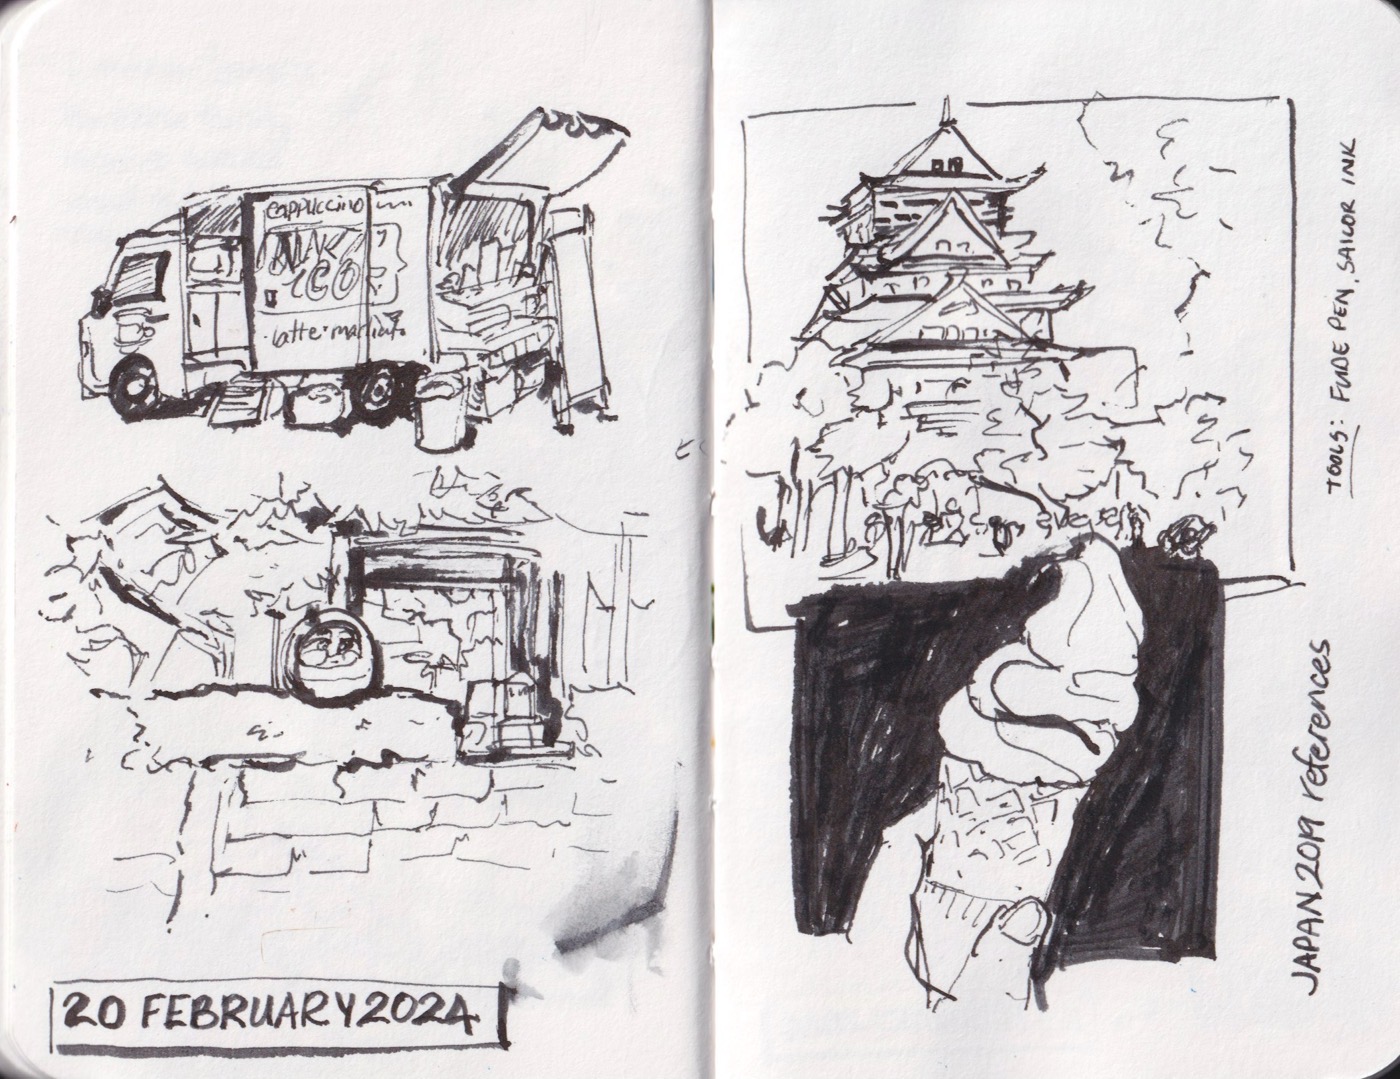 cappuccino
latte macchiato
20 FEBRUARY 2024
TOOLS: FUDE PEN, SAILOR INK
JAPAN 2019 references